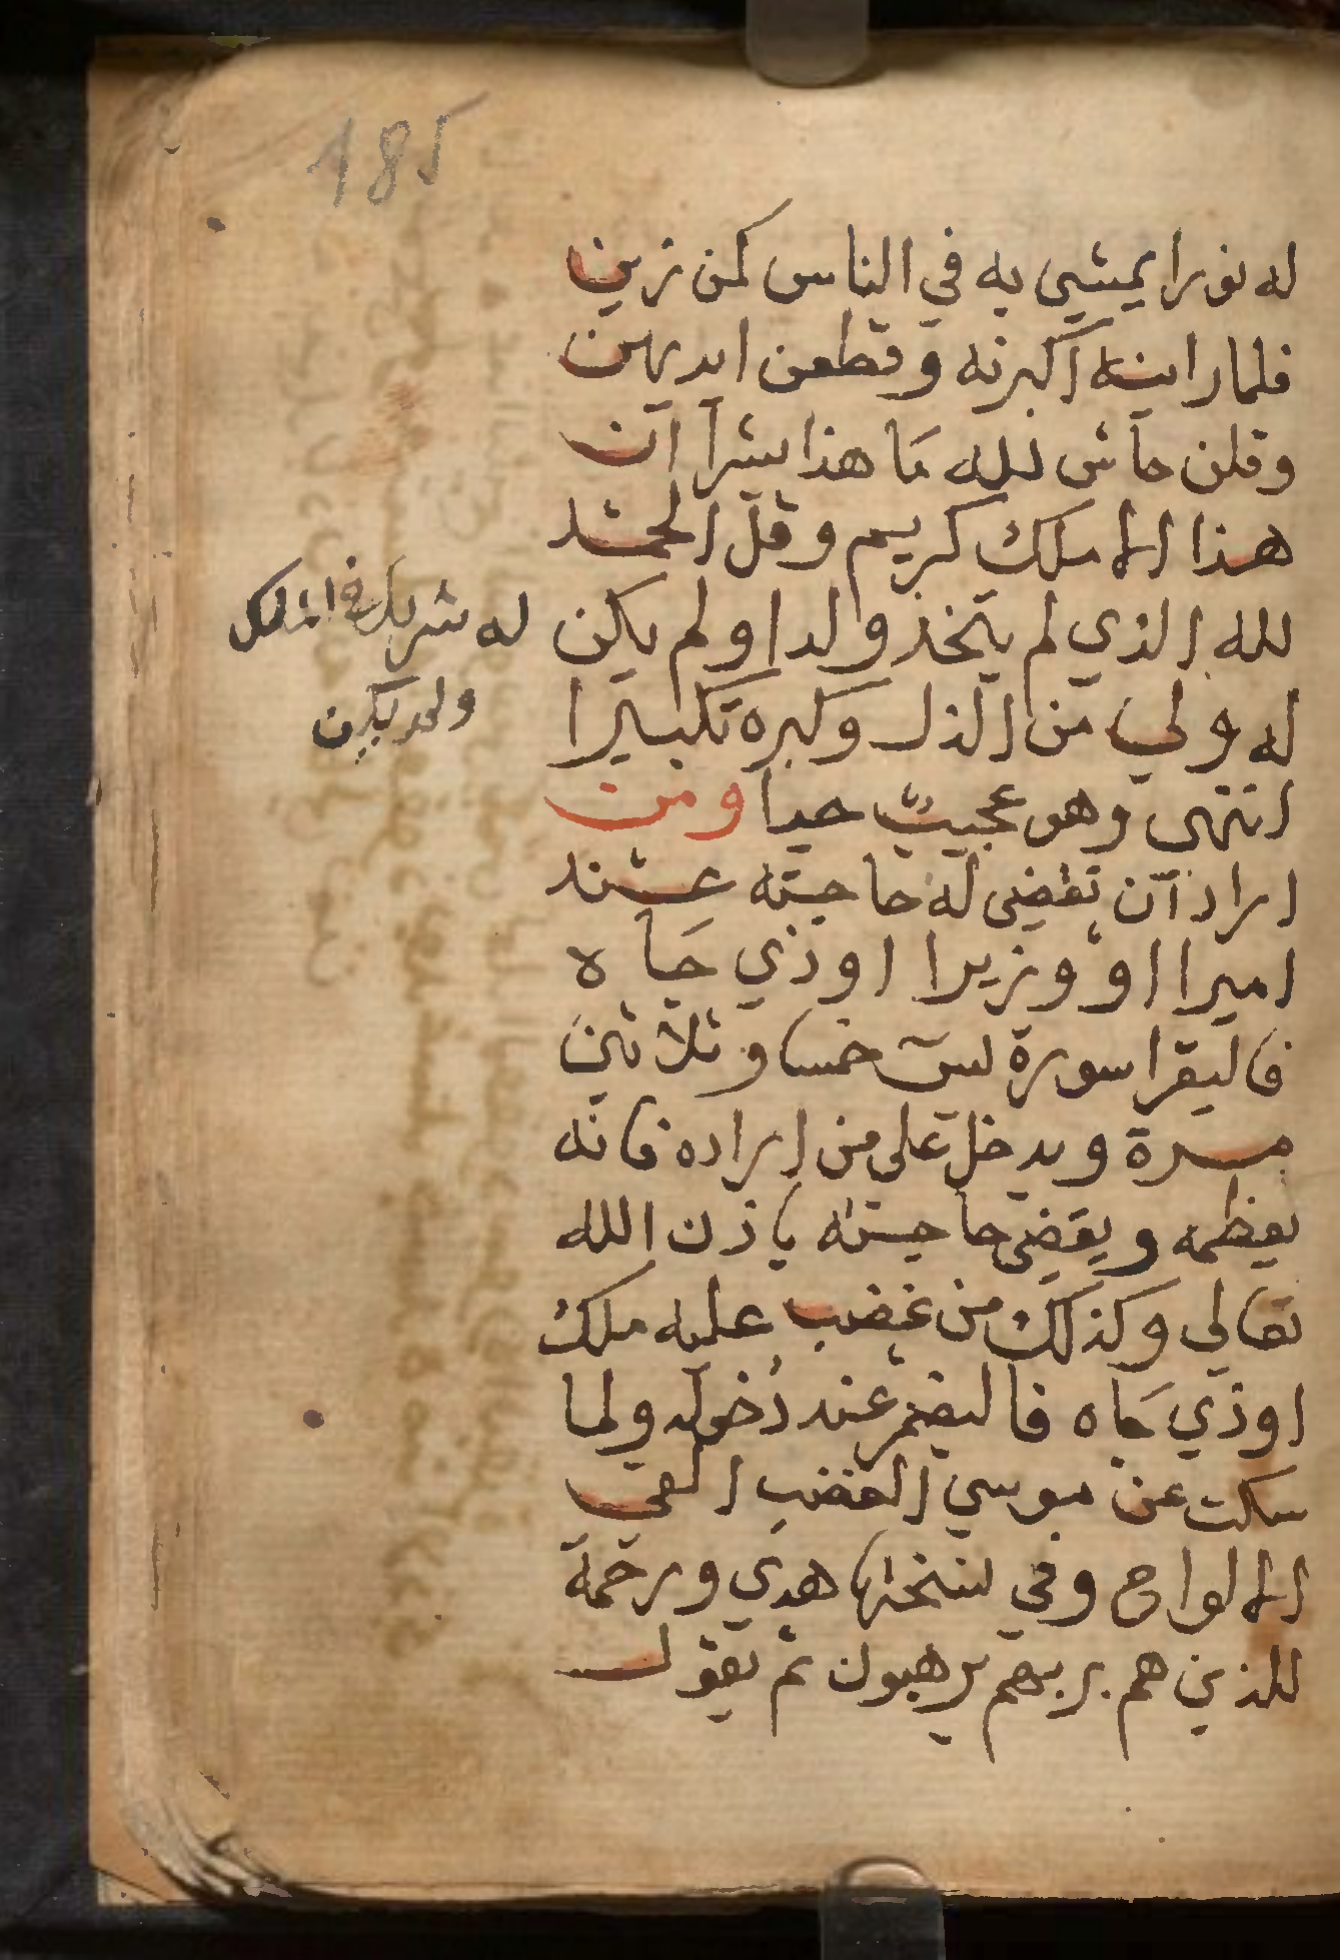 185
له نورا يمشي به في الناس كمن زين
فلما راينه اكبرنه وقطعن ايديهن
وقلن حاش لله ما هذا بشرا ان
هذا الا ملك كريم وقل الحمد
لله الذي لم يتخذ ولدا ولم يكن
له شريك في الملك
ولم يكن
له ولي من الذل وكبره تكبيرا
انتهى وهو عجيب جدا ومن
اراد ان تقضى له حاجته عند
اميرا او وزيرا او ذي جاه
فاليقرا سورة يس خمسا وثلاثين
مرة ويدخل على من اراده فانه
يعظمه ويقضي حاجته باذن الله
تعالى وكذلك من غضب عليه ملك
او ذي جاه فاليضمر عند دخوله ولما
سكت عن موسي الغضب القى
الالواح وفي نسختها هدي ورحمة
للذين هم بربهم يرهبون ثم تقول